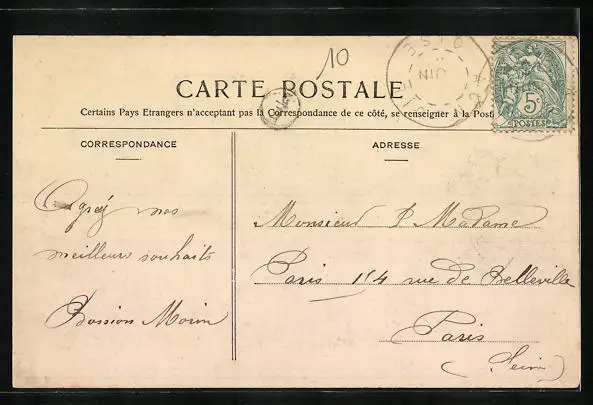 10
CARTE POSTALE
Certains Pays Etrangers n'acceptant pas la Correspondance de ce côté, se renseigner à la Poste
CORRESPONDANCE
ADRESSE
5c
POSTES
OISE
JUIN
Agréez nos
meilleurs souhaits
Morin
Monsieur & Madame
Paris 114 rue de Belleville
Paris
(Seine)